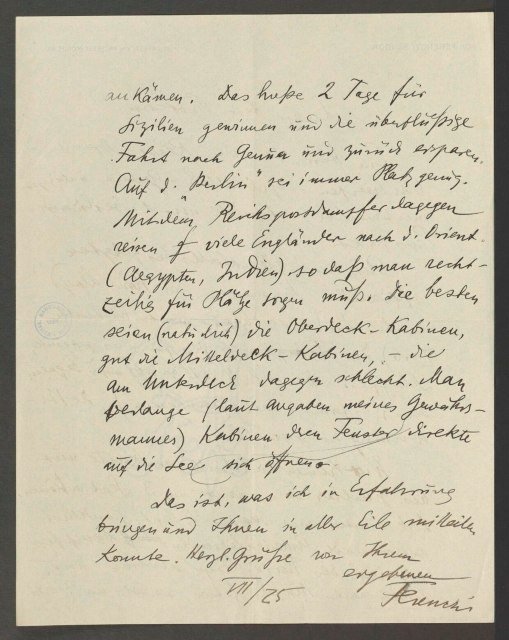 ankämen. Das hieße 2 Tage für
Sizilien gewinnen und die überflüßige
Fahrt nach Genua und zurück ersparen.
Auf d. „Berlin" sei immer Platz genug.
Mit dem Reichspostdampfer dagegen
reisen viele Engländer nach d. Orient
(Aegypten, Indien) so daß man recht-
zeitig für Plätze sorgen muß. Die besten
seien (natürlich) die Oberdeck-Kabinen,
gut die Mitteldeck-Kabinen, – die
am Unterdeck dagegen schlecht. Man
verlange (laut Angaben meines Gewährs-
mannes) Kabinen deren Fenster direkte
auf die See sich öffnen.
Das ist, was ich in Erfahrung
bringen und Ihnen in aller Eile mitteilen
konnte. Herzl. Grüße von Ihrem
ergebenen
Ferenczi
VII/25